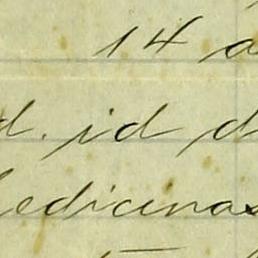 14 a
d. id d
edicinas